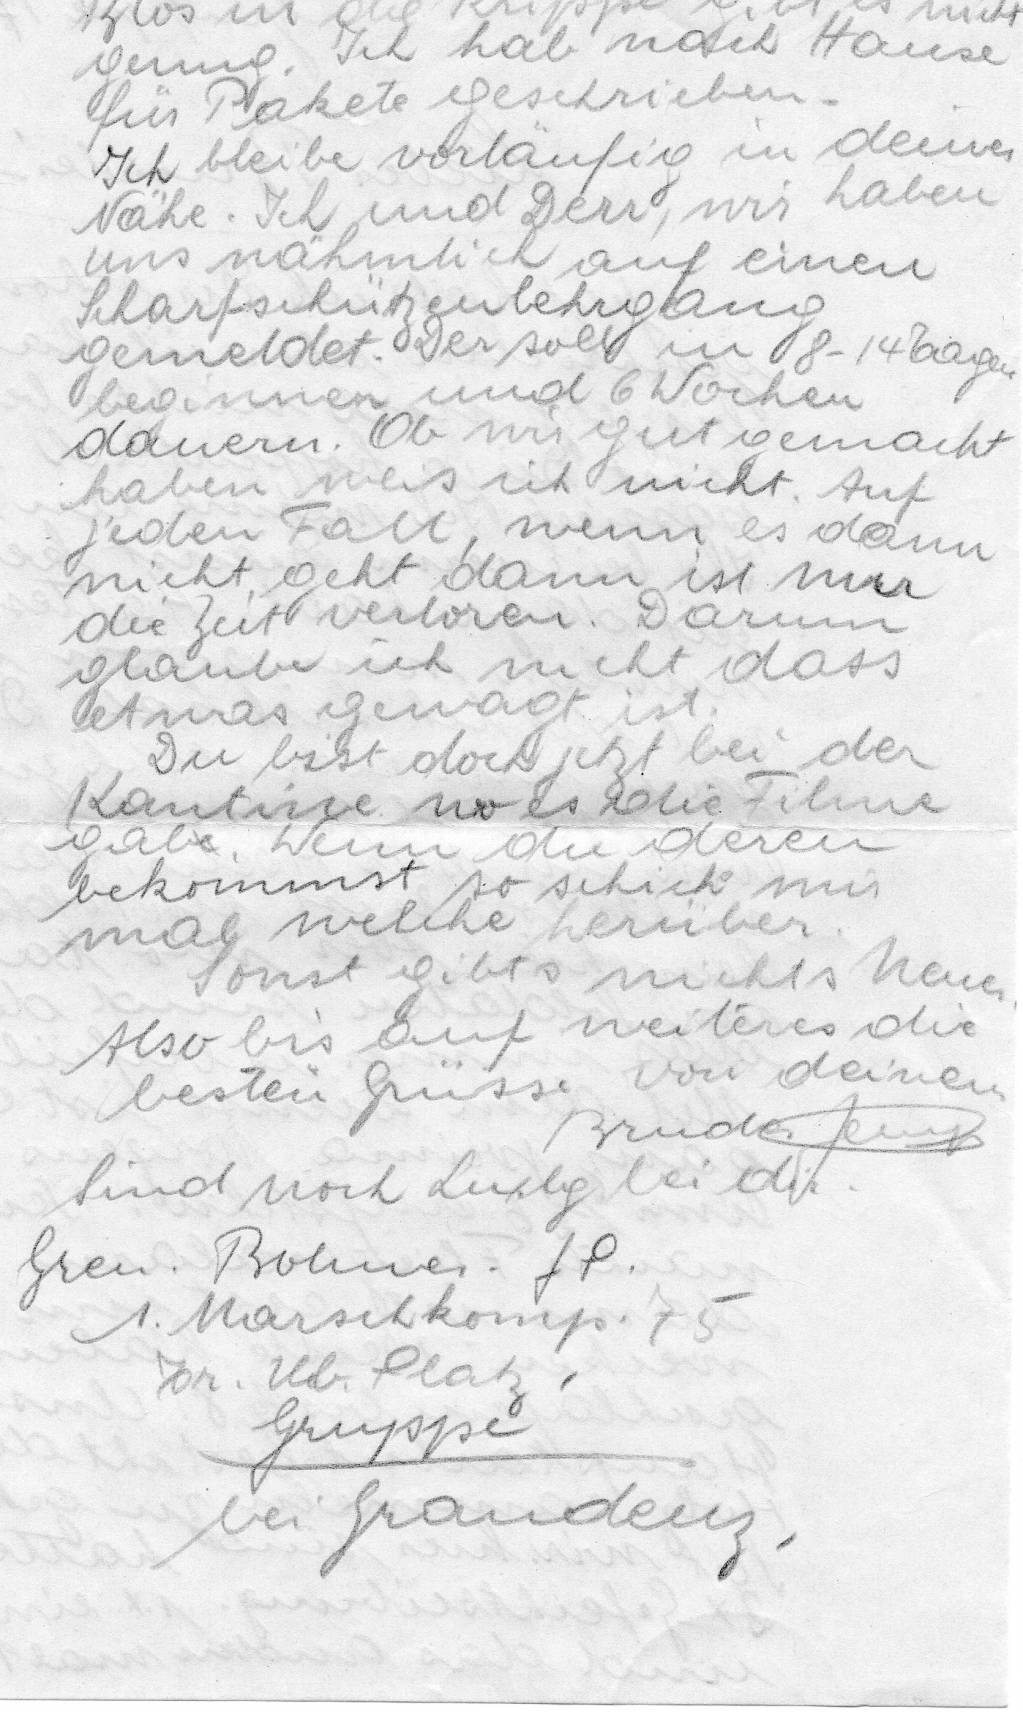 Blos in die Krippe gibt es nicht
genug. Ich hab nach Hause
für Pakete geschrieben.
Ich bleibe vorläufig in deiner
Nähe. Ich und Derr, wir haben
uns nähmlich auf einen
Scharfschützenlehrgang
gemeldet. Der soll in 8-14 Tagen
beginnen und 6 Wochen
dauern. Ob wir gut gemacht
haben weis ich nicht. Auf
jeden Fall, wenn es dann
nicht geht dann ist nur
die Zeit verloren. Darum
glaube ich nicht dass
etwas gewagt ist.
Du bist doch jetzt bei der
Kantine wo es die Filme
gabe. Wenn du deren
bekommst so schick mir
mal welche herüber.
Sonst gibts nichts Neues.
Also bis auf weiteres die
besten Grüsse von deinem
Bruder
Sind noch Luxbg bei dir.
Gren. Bohmer. J P.
1. Marschkomp. 75
Tr. Üb. Platz,
Gruppe
bei Graudenz,